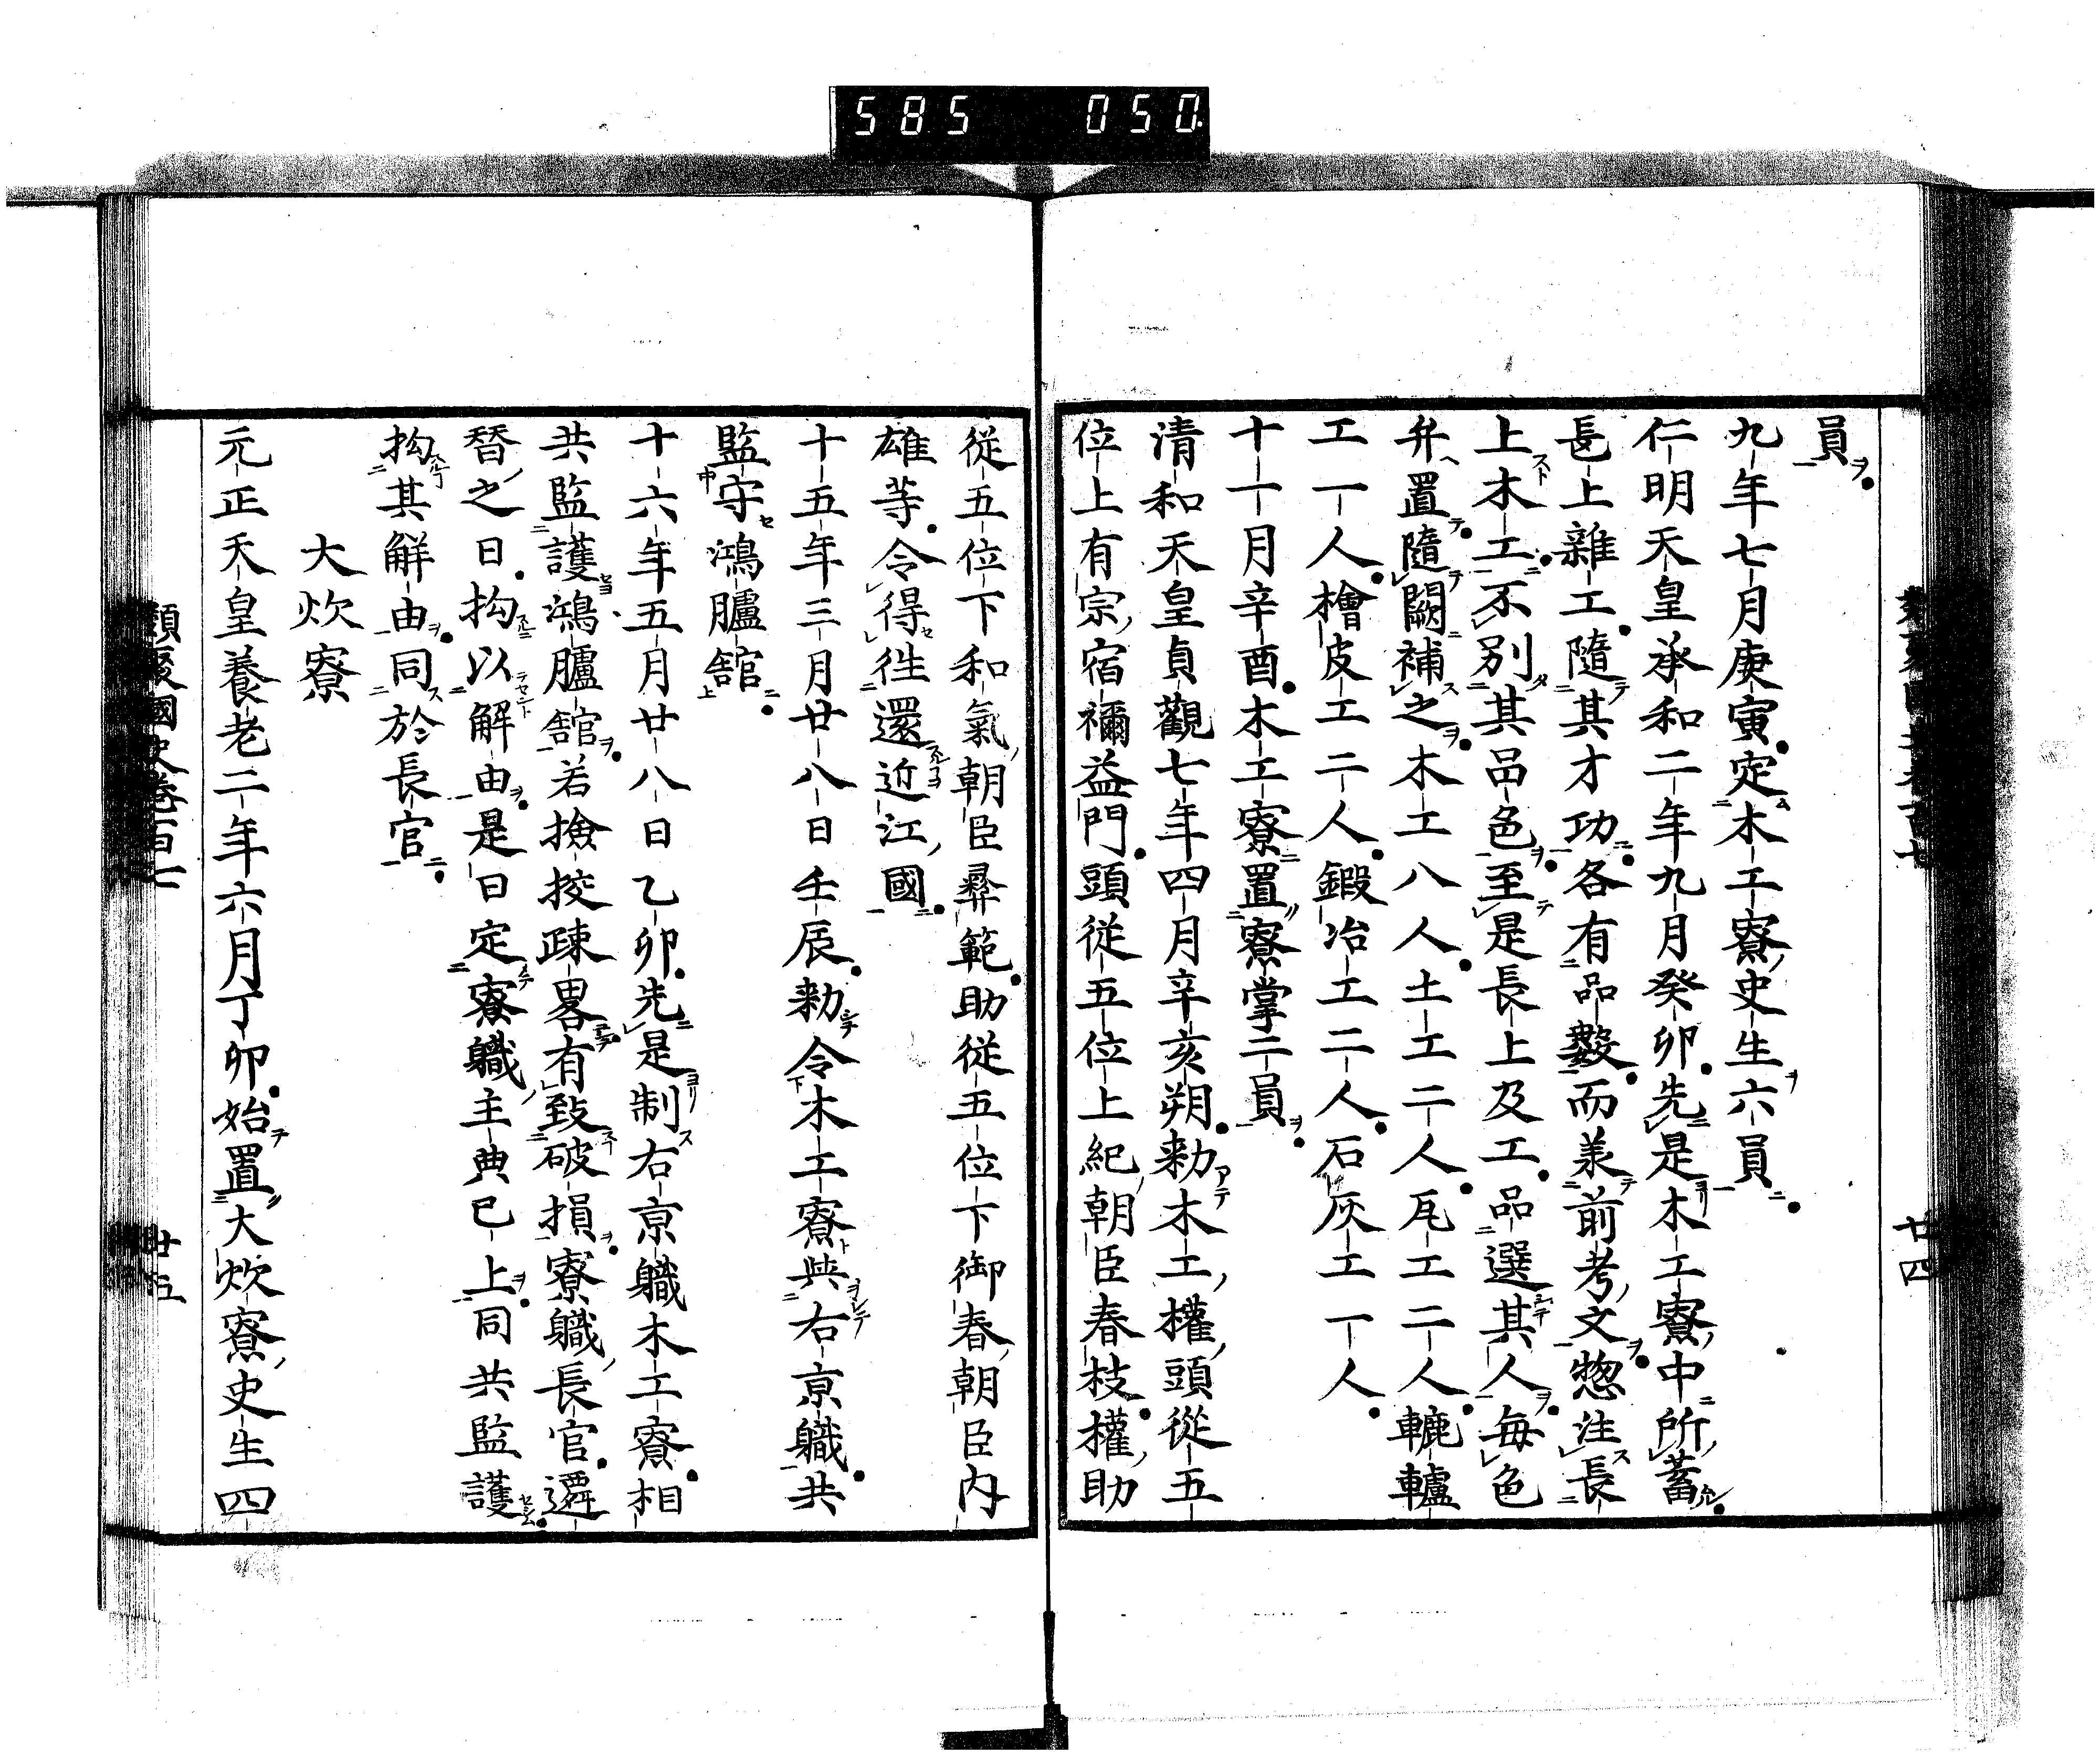 585 050
類聚國史卷百七 廿四
員
九年七月庚寅定木工寮史生六員
仁明天皇承和二年九月癸卯先是木工寮中所蓄
長上雜工隨其才功各有品數而美前考文惣注長
上木工不別其品色至是長上及工品選其人毎色
弁置隨闕補之木工八人土工二人瓦工二人轆轤
工一人檜皮工二人鍛冶工二人石灰工一人
十一月辛酉木工寮置寮掌二員
清和天皇貞觀七年四月辛亥朔勅木工權頭從五
位上有宗宿禰益門頭從五位上紀朝臣春枝權助
從五位下和氣朝臣彝範助從五位下御春朝臣内
雄等令得徃還近江國
十五年三月廿八日壬辰勅令木工寮與右京職共
監守鴻臚舘
十六年五月廿八日乙卯先是制右京職木工寮相
共監護鴻臚舘若撿挍疎畧有致破損寮職長官遷
替之日拘以解由是日定寮職主典已上同共監護
拘其解由同於長官
大炊寮
元正天皇養老二年六月丁卯始置大炊寮史生四
類聚國史卷百七 廿五